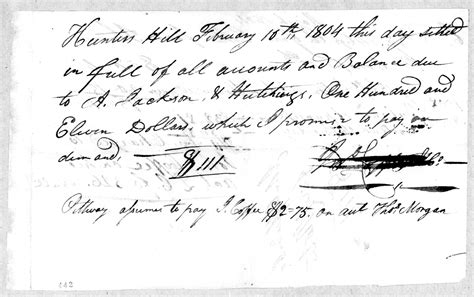 Hunters Hill February 10th 1804 this day settled
in full of all accounts and Balance due
to A. Jackson & Hutchings, One Hundred and
Eleven Dollars, which I promise to pay on
demand, $111
Pittway assumes to pay J. Coffee $2=75. on act Thos. Morgan